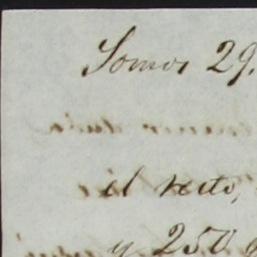 Somos 29.
el resto,
y 250